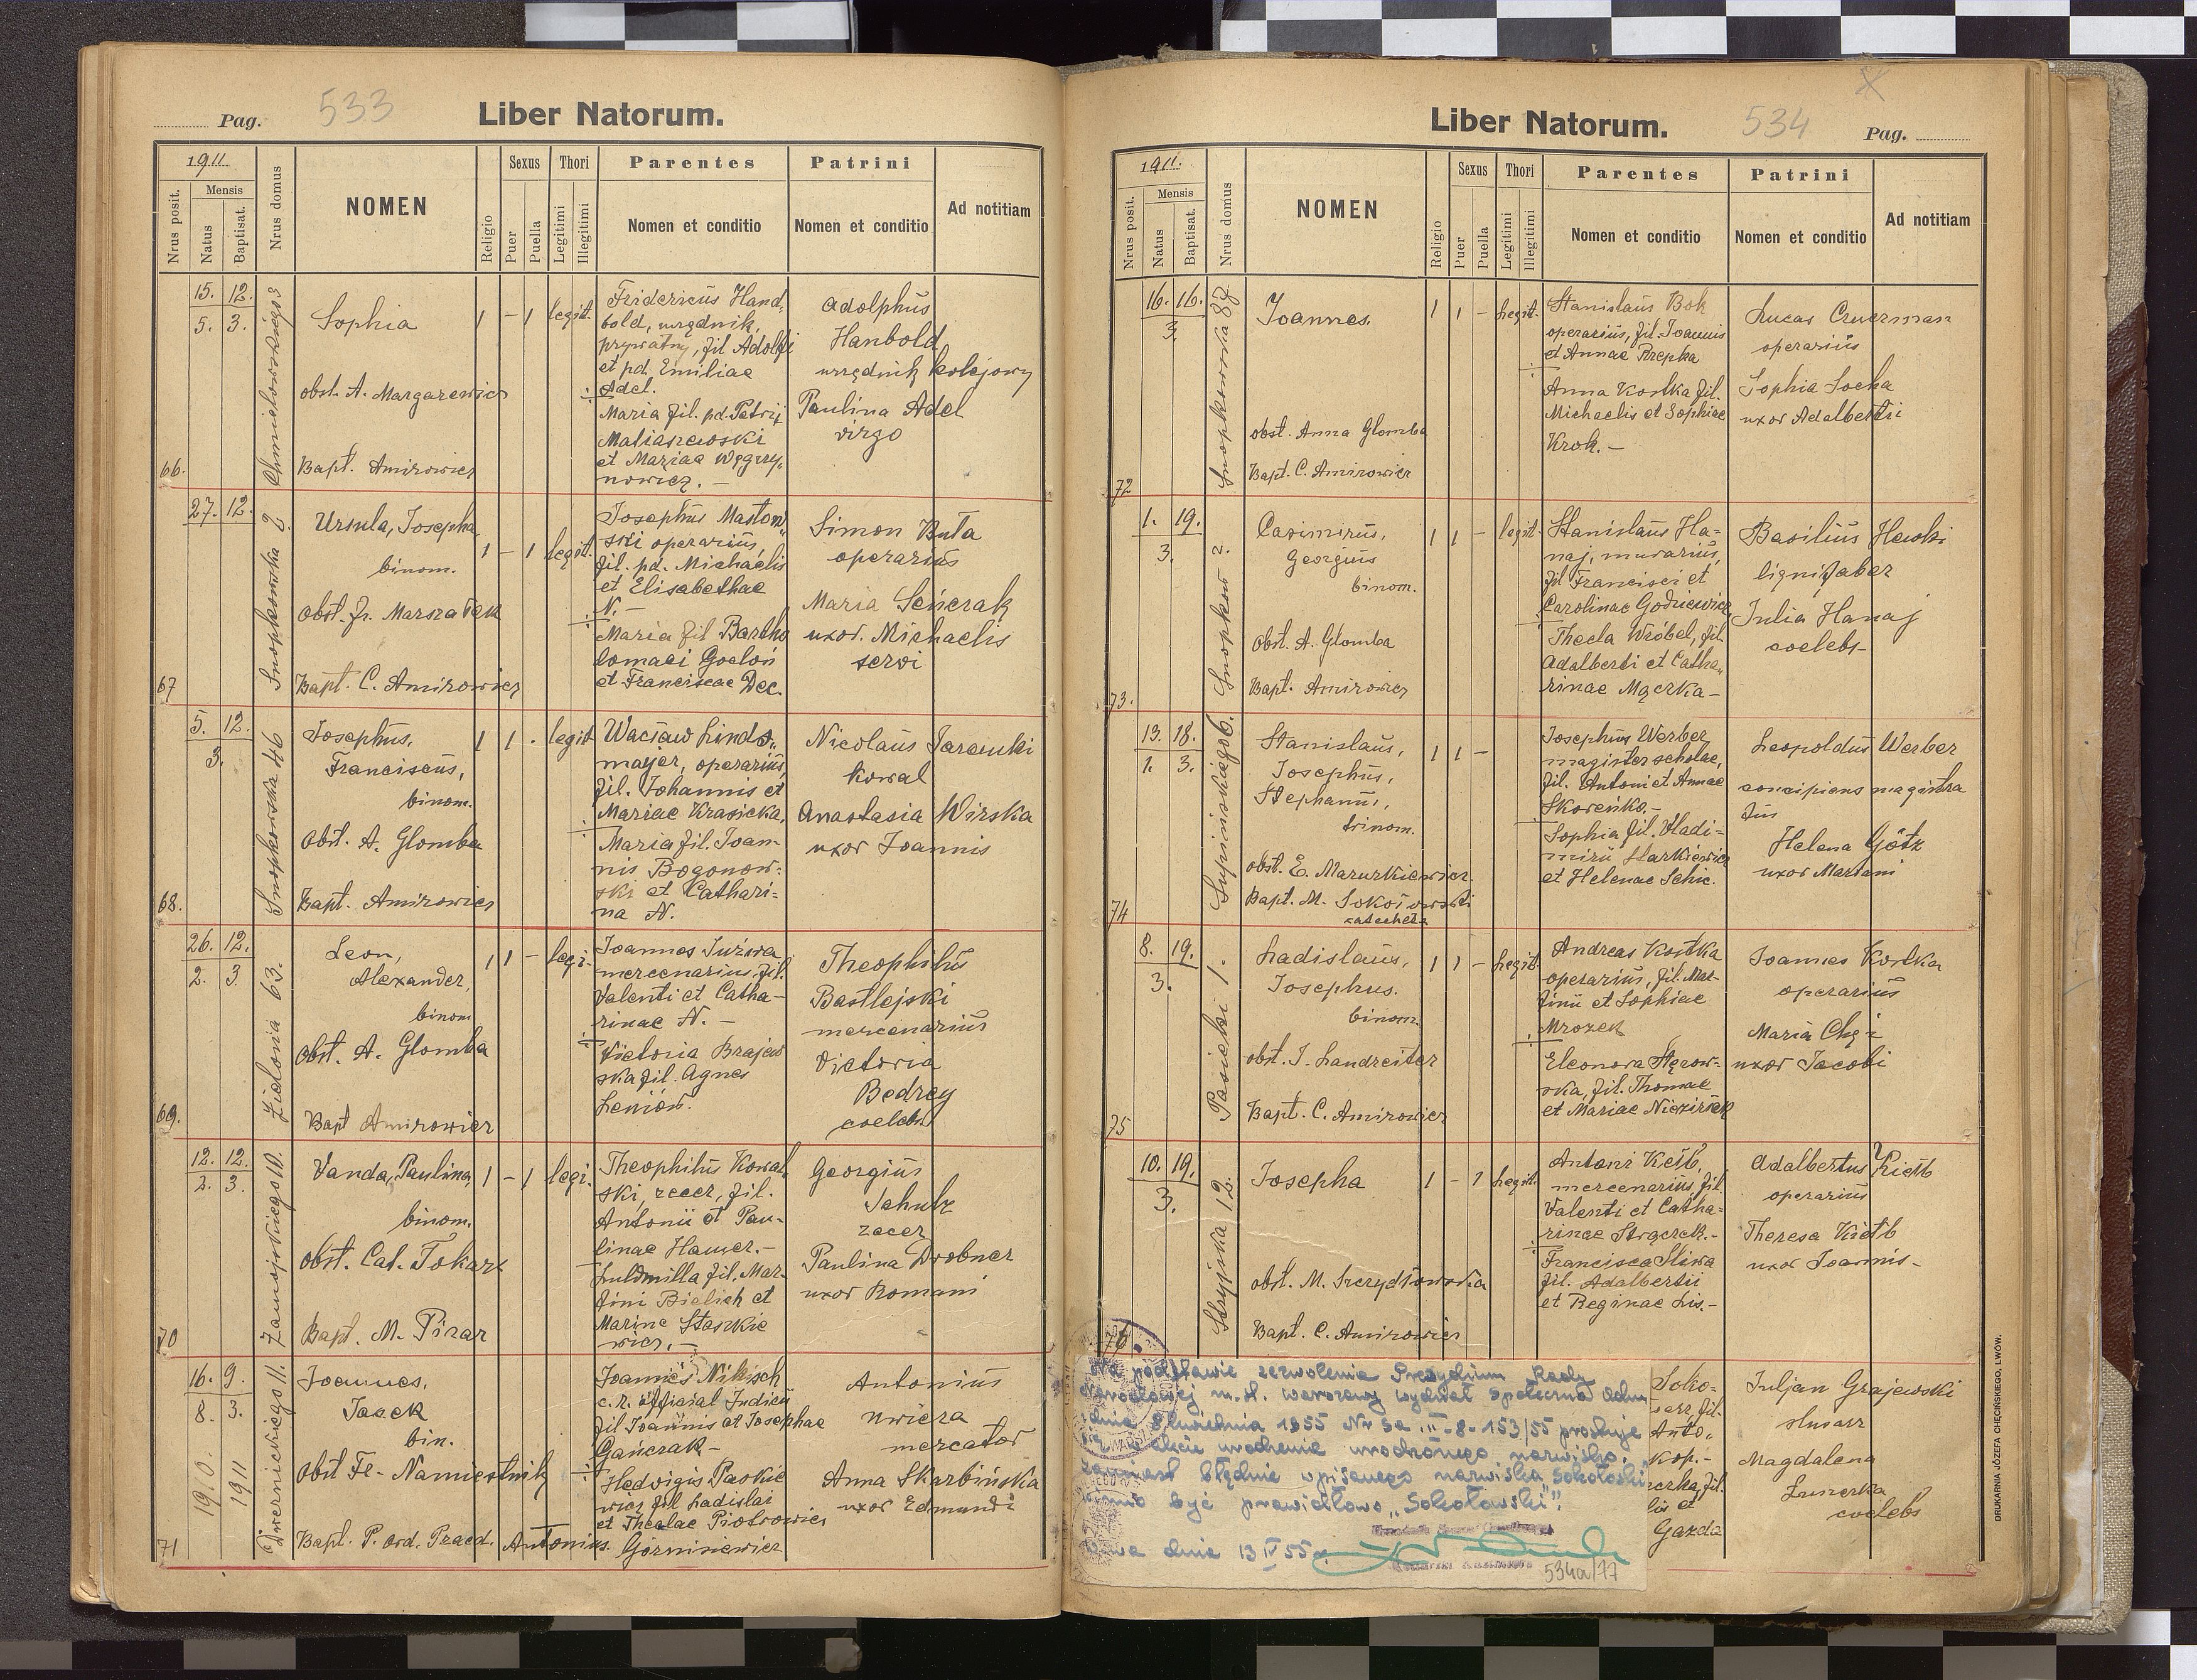 Pag. 533
Liber Natorum.
1911.
Nrus posit.
Mensis
Natus
Baptisat.
Nrus domus
NOMEN
Religio
Sexus
Puer
Puella
Thori
Legitimi
Illegitimi
Parentes
Nomen et conditio
Patrini
Nomen et conditio
Ad notitiam
66.
15. 12.
5. 3.
Chmielowskiego 3
Sophia
obst. A. Margarewicz
Bapt. Amirowicz
1 - 1 legit.
Fridericus Hand,
bold, urzędnik,
prywatny, fil Adolfi
et pd. Emiliae
Adel.
Maria fil. pd. Petri
Maliaszewski
et Mariae Węgrzy,
nowicz. -
Adolphus
Hanbold
urzędnik kolejowy
Paulina Adel
virgo
67
27. 12.
Snopkowska 2.
Ursula, Josepha
binom.
Obst. Fr. Marszałek
Bapt. C. Amirowicz
1 - 1 legit.
Josephus Maston,
ski operarius,
fil. pd. Michaelis
et Elisabethae
N. -
Maria fil Bartho
lomaei Gocłoń
et Franciscae Dec.
Simon Buta
operarius
Maria Seńczak
uxor. Michaelis
servi
68.
5. 12.
3.
Snopkowska 46
Josephus,
Franciscus,
binom.
Obst. A. Glomba
Bapt. Amirowicz
1 1 . legit
Wacław Lindo,,
majer, operarius,
fil. Johannis et
Mariae Krasicka.
Maria fil. Joan-
nis Bogonow-
ski et Cathari-
na N.
Nicolaus Jaremki
kowal
Anastasia Wirska
uxor Joannis
69.
26. 12.
2. 3.
Zielona 63.
Leon,
Alexander,
binom
Obst. A. Glomba
Bapt Amirowicz
1 1 - legi.
Joannes Surowa
mercenarius, fil.
Valenti et Catha-
rinae N. -
Victoria Brajew
ska fil. Agnes
Leniów.
Theophilus
Bastlejski
mercenarius
Victoria
Bedrey
coelebs
70
12. 12.
2. 3.
Zamojskiego 10.
Vanda, Paulina,
binom.
obst. Cat. Tokarz
Bapt. M. Pirar
1 - 1 legi.
Theophilus Kowal
ski, zecer, fil.
Antonii et Pau-
linae Hauser. -
Luldmilla fil. Mar-
tini Bielich et
Marine Staszkie
wicz. -
Georgius
Schulz
zecer
Paulina Drobner
uxor Romani
71
16. 9.
8. 3.
1910 1911
Czwernickiego 11.
Joannes,
Jacek
bin.
Obst Fe- Namiestnik
Bapt. P. ord. Praed. Antonius. Górnisiewicz
Joannes Nikisch
c. r. official Judicii
fil Joannis et Josephae
Gańczak -
Hedvigis Paskie
wicz fil Ladislai
et Theclae Piotrowicz
Antonius
Uwiera
mercator
Anna Skarbińska
uxor Edmundi
Liber Natorum.
534 Pag.
X
1911.
Nrus posit.
Mensis
Natus
Baptisat.
Nrus domus
NOMEN
Religio
Sexus
Puer
Puella
Thori
Legitimi
Illegitimi
Parentes
Nomen et conditio
Patrini
Nomen et conditio
Ad notitiam
72
16. 16.
3.
Snopkowska 87
Joannes.
obst. Anna Glomba
Bapt. C. Amirowicz
1 1 - legit.
Stanislaus Bok
operarius, fil. Joannis
et Annae Przepka
Anna Kostka fil.
Michaelis et Sophiae
Krok. -
Lucas Cruerman
operarius
Sophia Socha
uxor Adalberti
73.
1. 19.
3.
Snopkow 2.
Casimirus,
Georgius
binom.
Obst. A. Glomba
Bapt. Amirowicz
1 1 - legit.
Stanislaus Ha=
naj, murarius,
fil Francisci et
Carolinae Godziewicz
Thecla Wróbel, fil.
Adalberti et Catha,,
rinae Mączka -
Basilius Hewski
lignifaber
Julia Hanaj
coelebs -
74
13. 18.
1. 3.
Supińskiego 6.
Stanislaus,
Josephus,
Stephanus,
trinom.
obst. E. Mazurkiewicz.
Bapt. M. Sokołowski
catecheta
1 1 -
Josephus Werber
magister scholae,
fil. Antoni et Annae
Skoreńko. -
Sophia fil. Vladi=
mirii Starkiewicz
et Helenae Schic.
Leopoldus Werber
concipiens magistra
tus
Helena Götz
uxor Mariani
75
8. 19.
3.
Pasieki 1.
Ladislaus,
Josephus.
binom.
obst. J. Landreiter
Bapt. C. Amirowicz
1 1 - legit.
Andreas Kostka
operarius, fil. Mar-
tinii et Sophiae
Mrozek
Eleonora Stęrow-
ska, fil. Thomae
et Mariae Niezirsek
Joannes Kostka
operarius
Maria Chęć
uxor Jacobi
76.
10. 19.
3.
Stryjska 12.
Josepha
obst. M. Szczydłowska
Bapt. C. Amirowicz
1 - 1 legit.
Antoni Kełb,
mercenarius, fil.
Valenti et Catha=
rinae Strączek. -
Francisca Sliwa
fil. Adalberti
et Reginae Lis. -
Adalbertus Kiełb
operarius
Theresa Kiełb
uxor Joannis -
Na podstawie zezwolenia Prezydium Rady
Narodowej m. st. Warszawy Wydział Społeczno Adm
dnia 8 kwietnia 1955 Nr Sa. II-8-153/55 prostuje
się w akcie urodzenia urodzonego nazwisko.
zamiast błędnie wpisanego nazwiska "Sokołoski"
winno być prawidłowo „Sokołowski".
dnia 13 IV 55 r.
534a/77
Soko-
sarz fil.
Anto,
kop. -
fil.
et
Gazda
Juljan Grajewski
slusarz
Magdalena
Zunerka
coelebs
DRUKARNIA JÓZEFA CHĘCIŃSKIEGO, LWÓW.